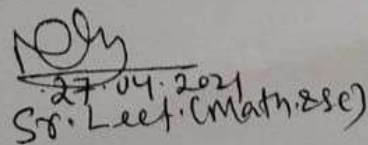 27.04.2021
Sr. Lect. (Math. & Sc)